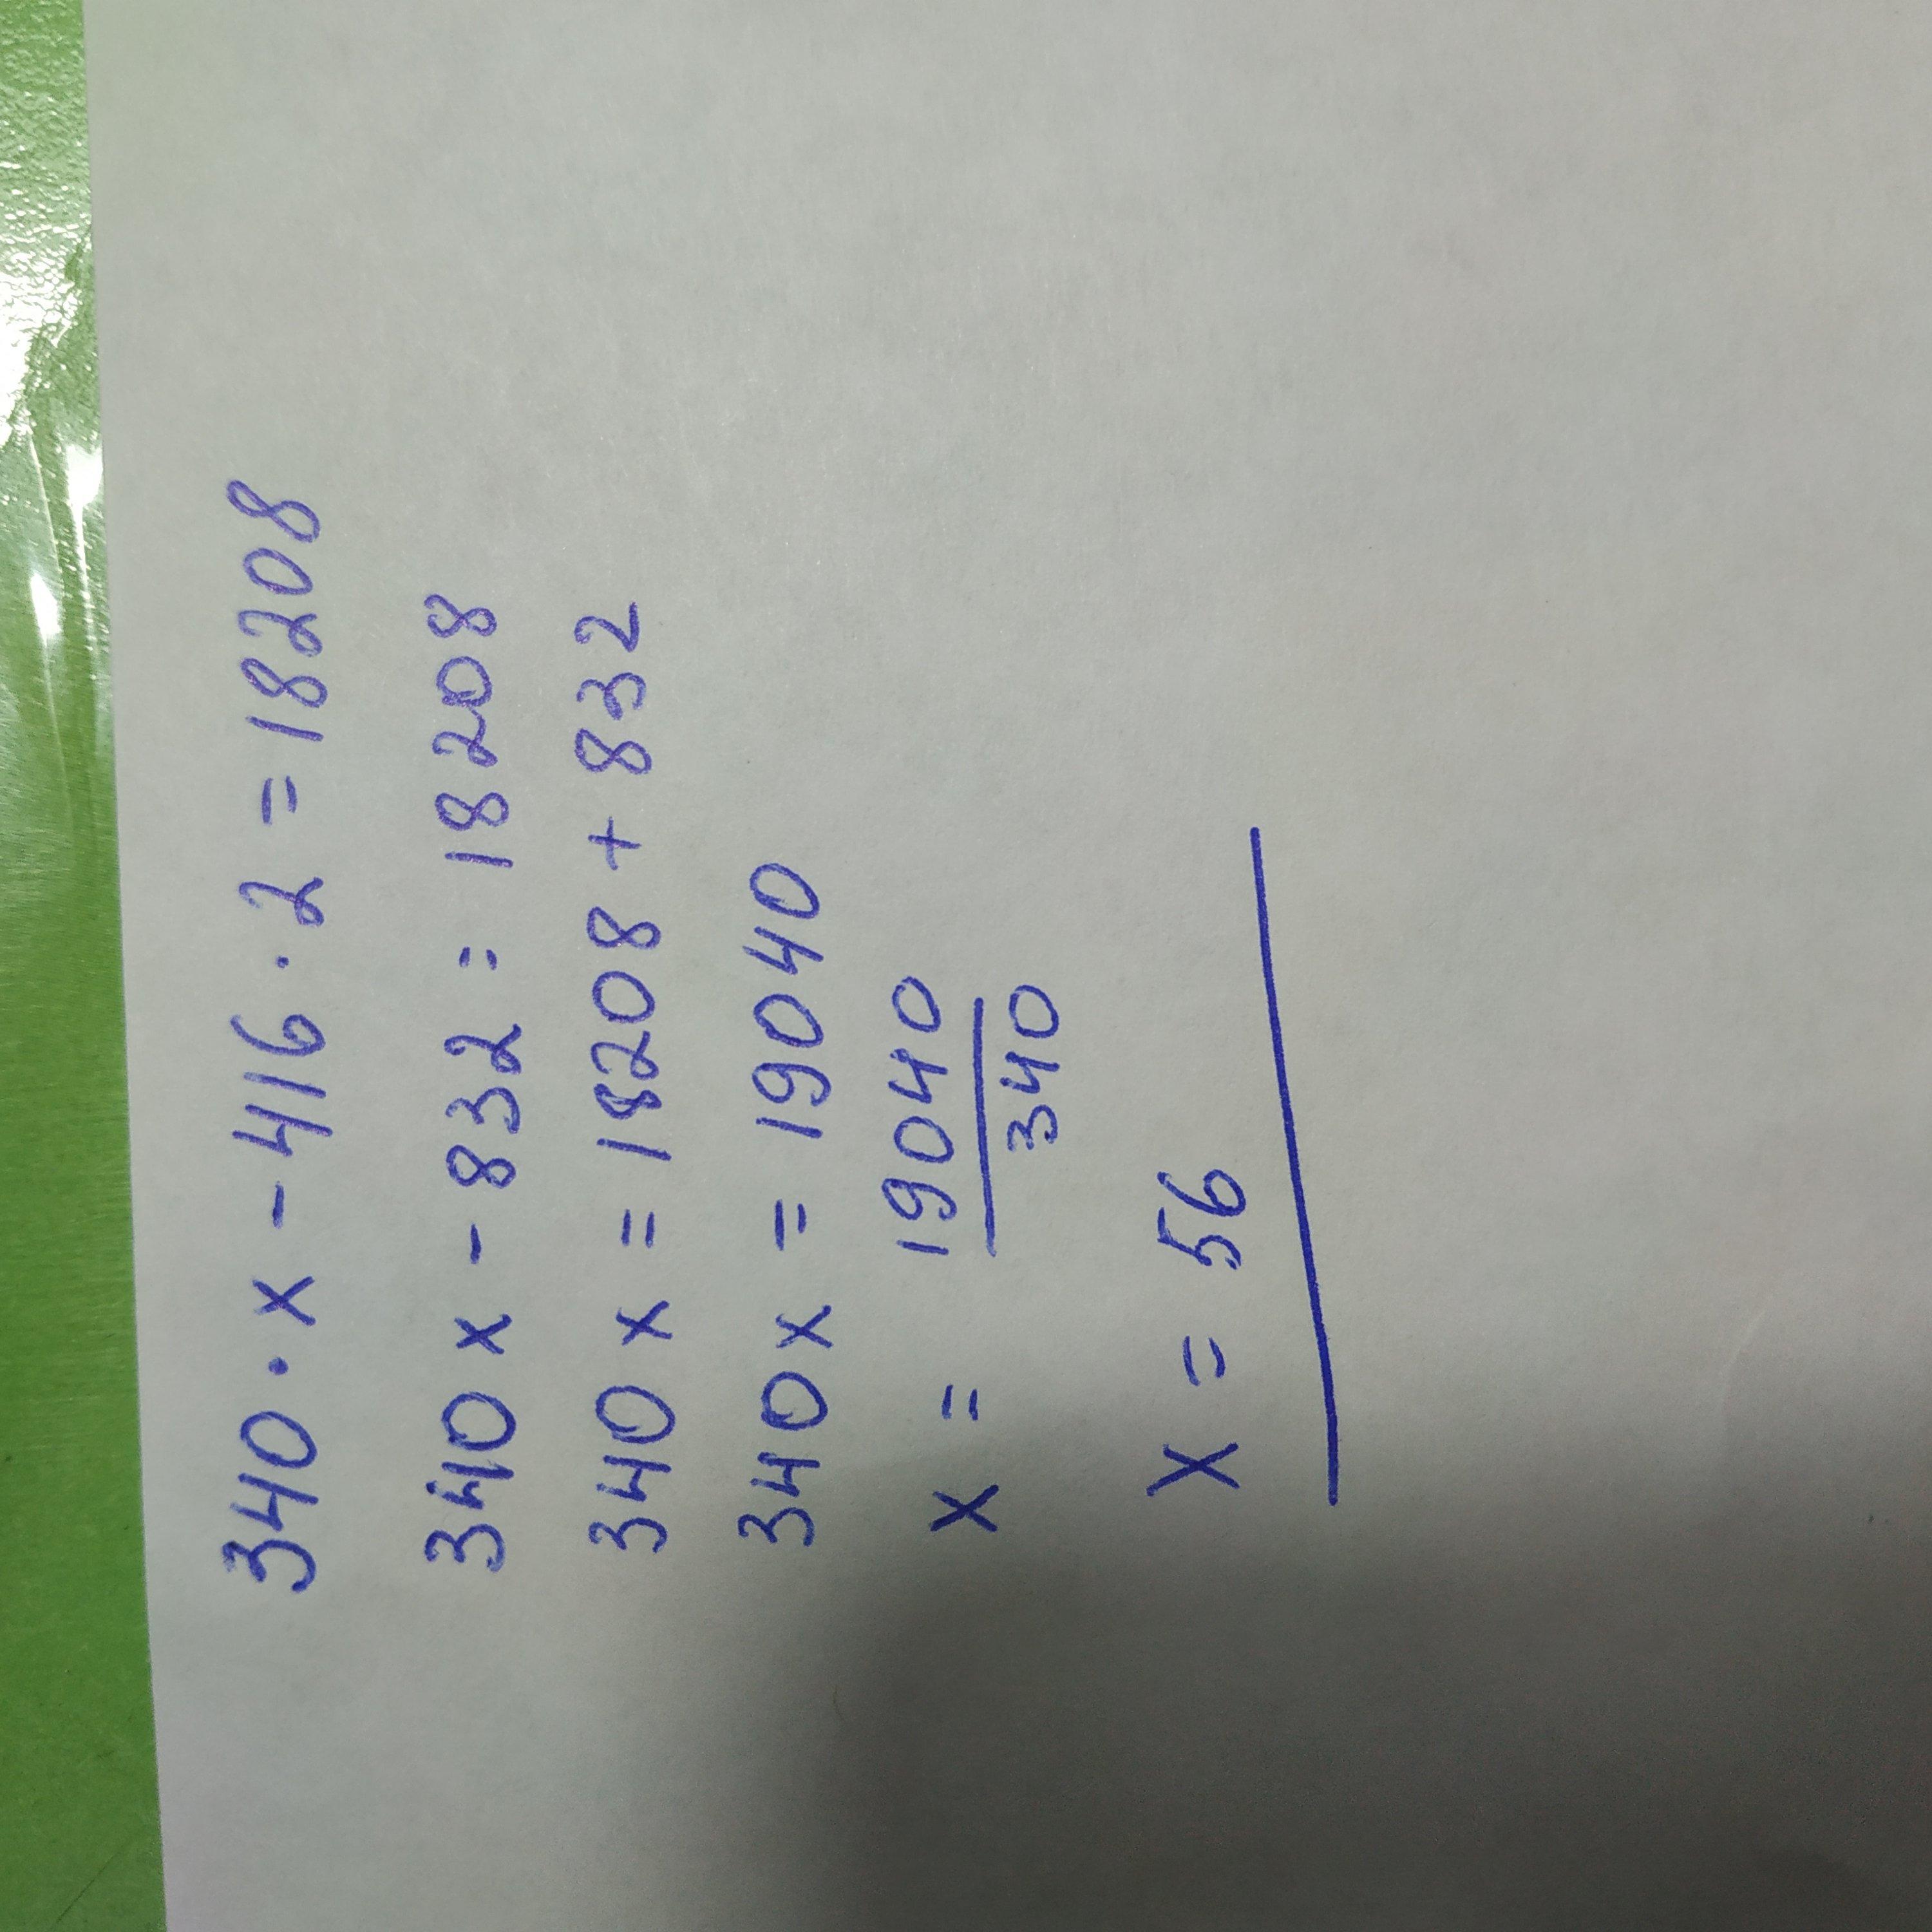 340 · x - 416 · 2 = 18208
340 x - 832 = 18208
340 x = 18208 + 832
340 x = 19040
x = 19040
340
x = 56